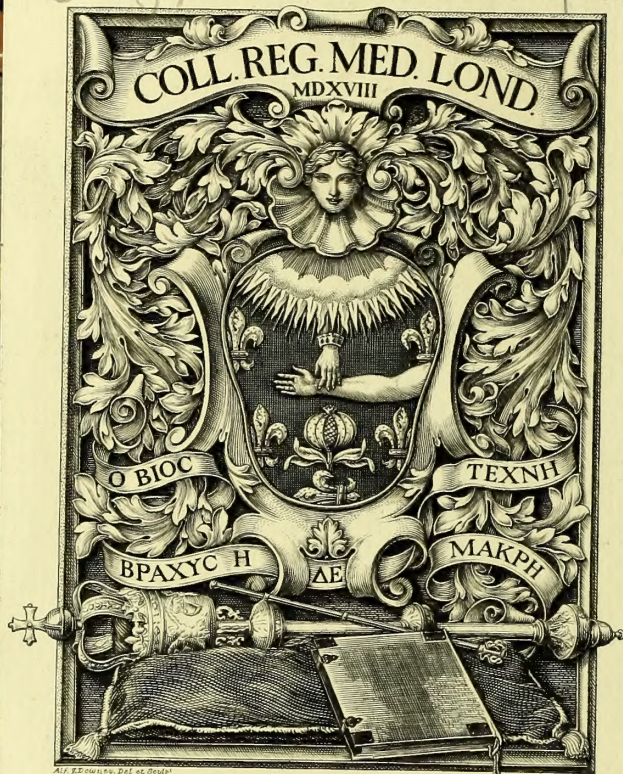 COLL. REG. MED. LOND.
MDXVIII
Ο ΒΙΟC
ΒΡΑΧΥC Η
ΔΕ
ΤΕΧΝΗ
ΜΑΚΡΗ
Del et Sculpt